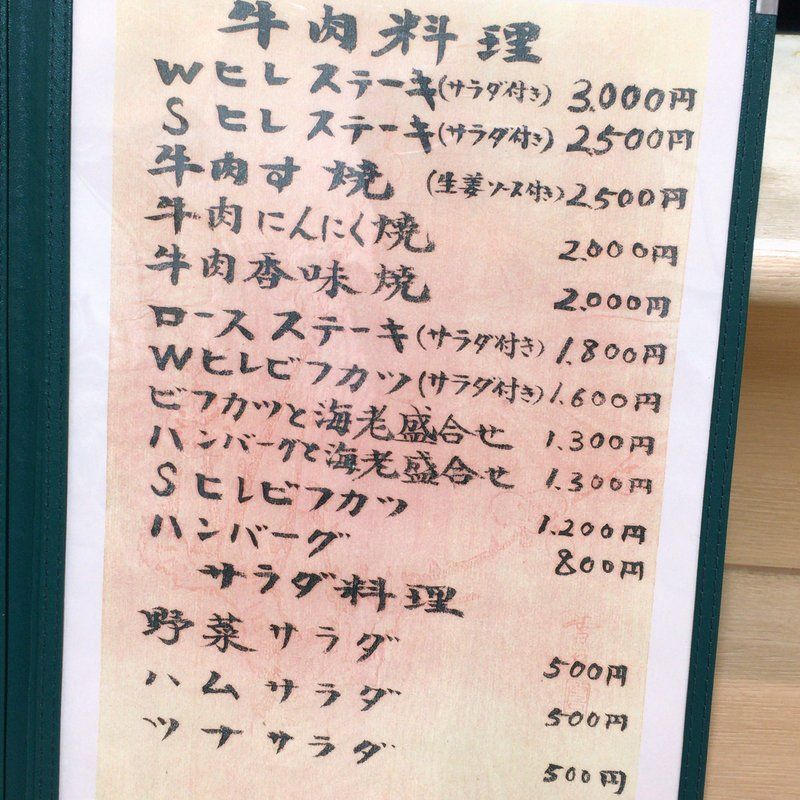 牛肉料理
Wヒレステーキ(サラダ付き) 3.000円
Sヒレステーキ(サラダ付き) 2.500円
牛肉す焼 (生姜ソース付き) 2.500円
牛肉にんにく焼 2.000円
牛肉香味焼 2.000円
ロースステーキ(サラダ付き) 1.800円
Wヒレビフカツ(サラダ付き) 1.600円
ビフカツと海老盛合せ 1.300円
ハンバーグと海老盛合せ 1.300円
Sヒレビフカツ 1.200円
ハンバーグ 800円
サラダ料理
野菜サラダ 500円
ハムサラダ 500円
ツナサラダ 500円